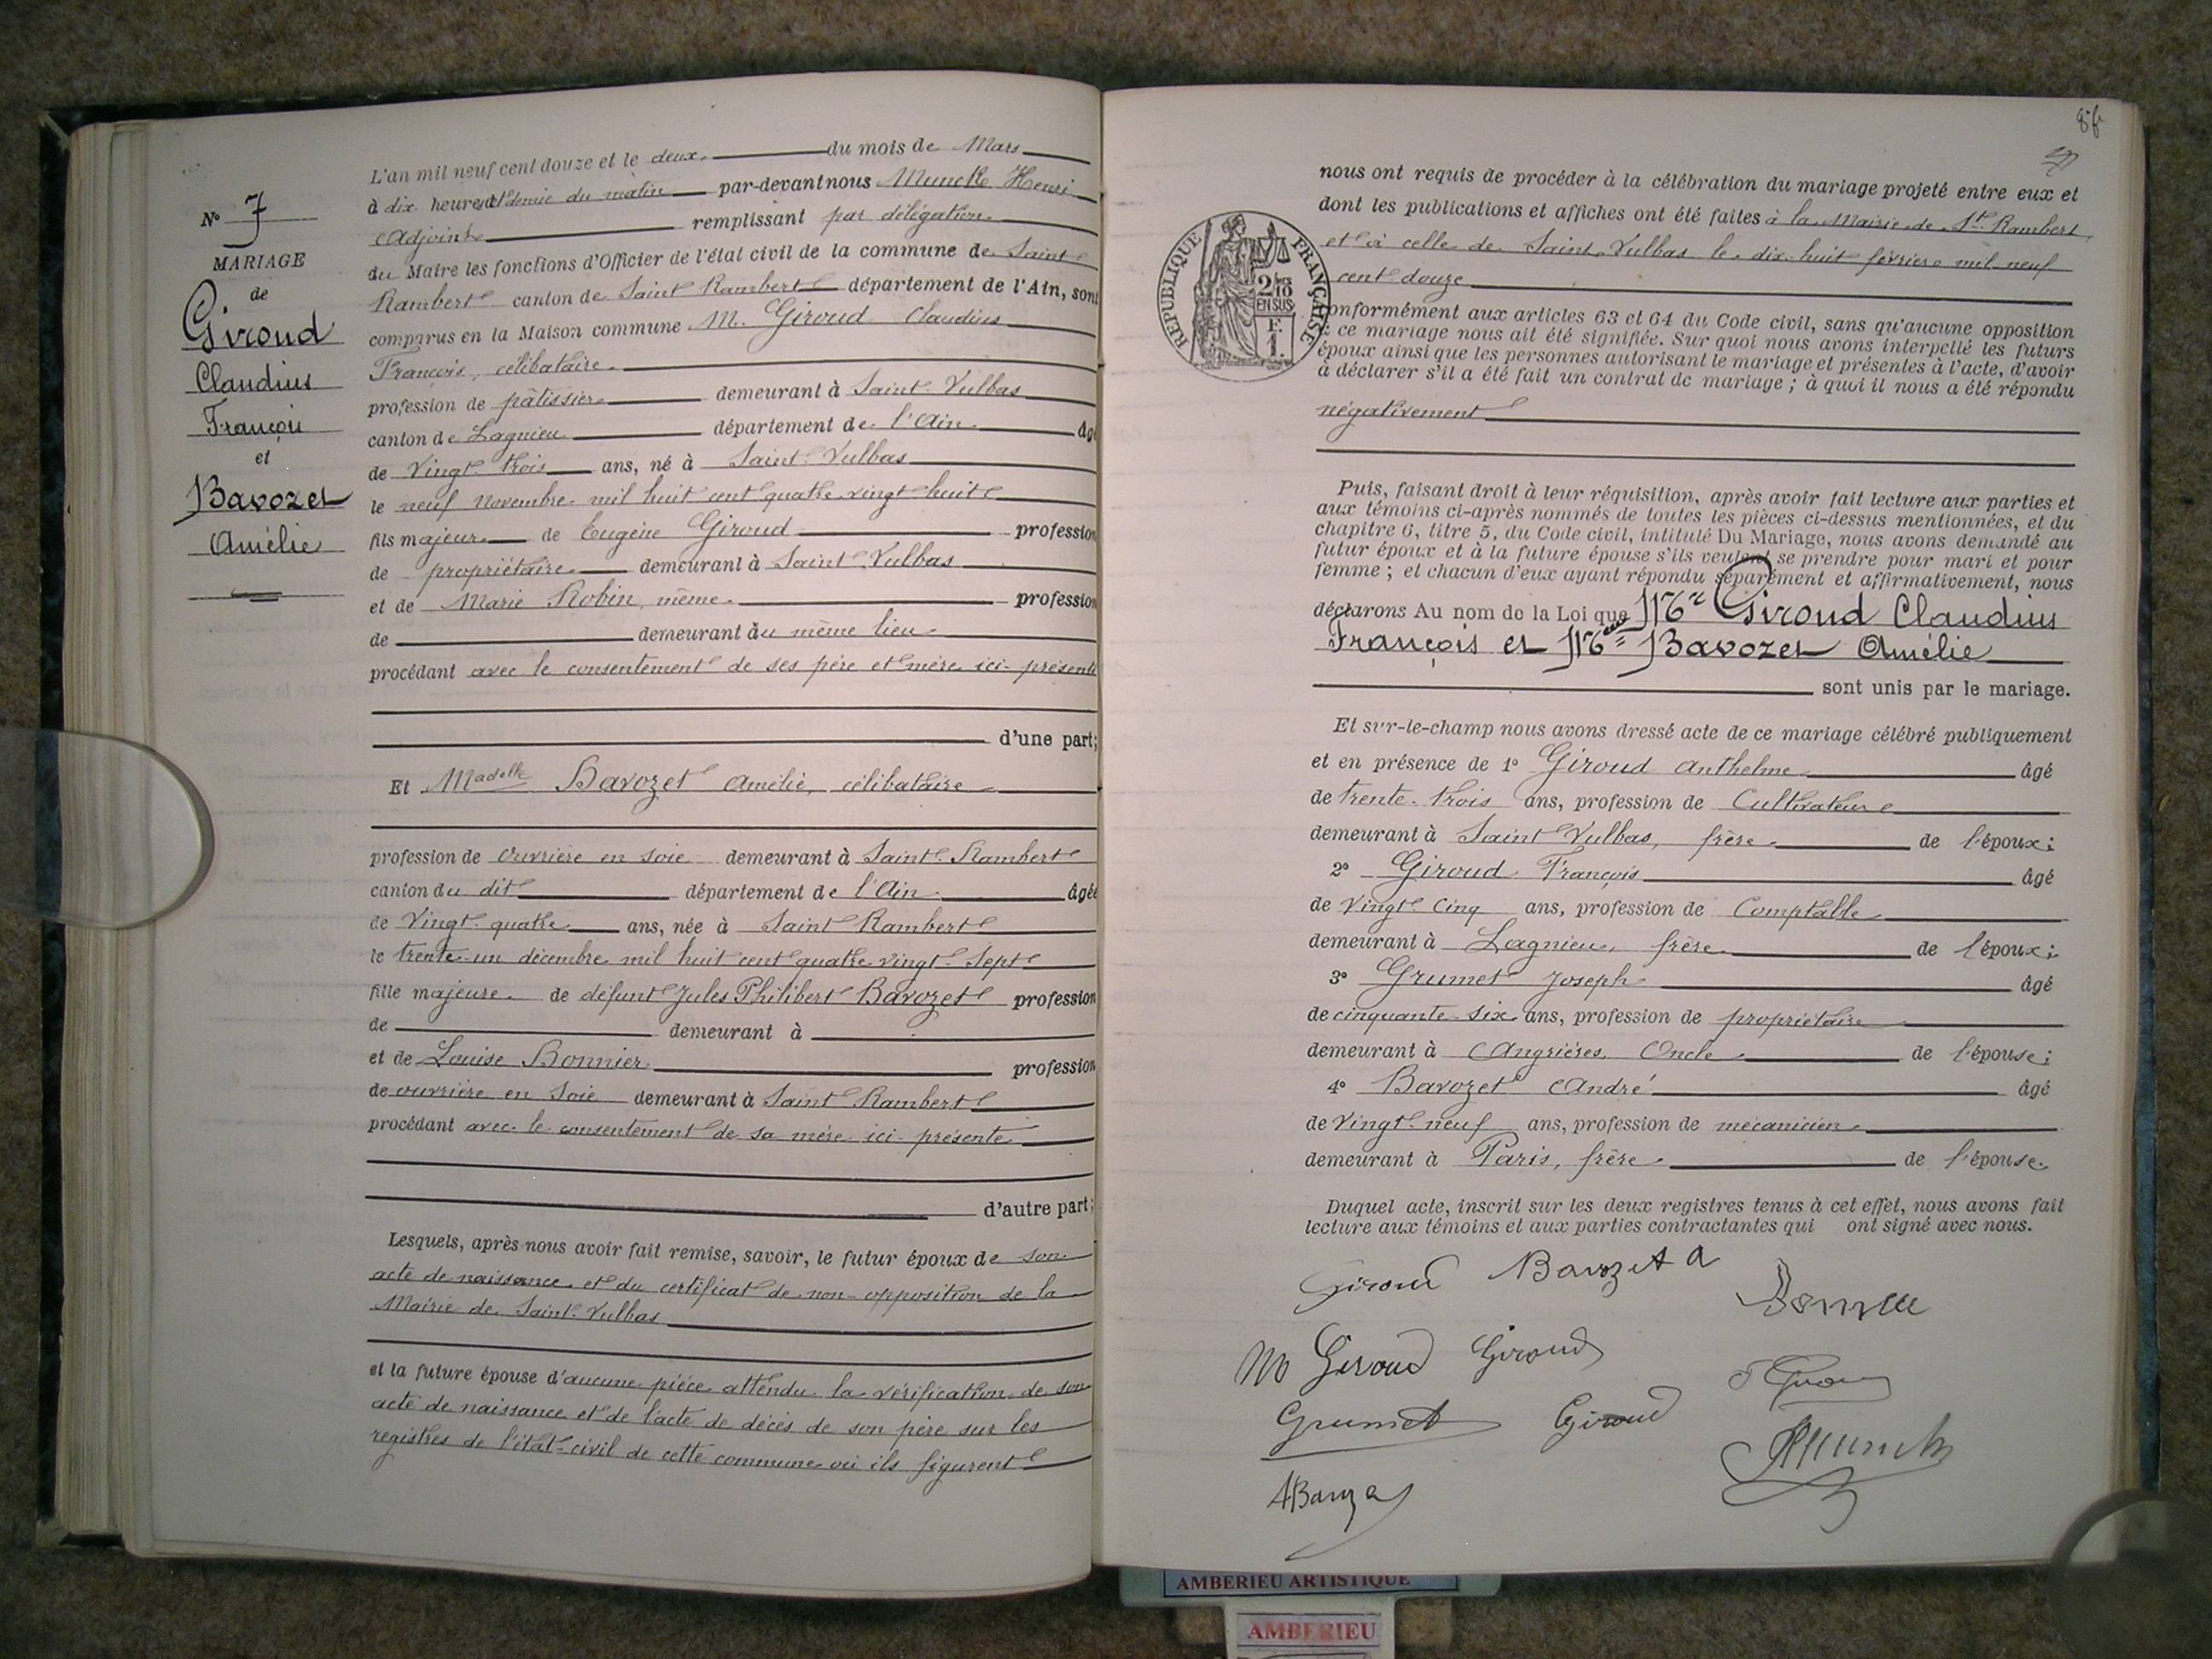 N° 7
MARIAGE
de
Giroud
Claudius
François
et
Bavozet
Amélie
L'an mil neuf cent douze et le deux du mois de Mars
à dix heures et demie du matin par-devant nous Munck Henri
Adjoint remplissant par délégation
du Maire les fonctions d'Officier de l'état civil de la commune de Saint
Rambert canton de Saint Rambert département de l'Ain, sont
comparus en la Maison commune M. Giroud Claudius
François, célibataire
profession de pâtissier demeurant à Saint-Vulbas
canton de Lagnieu département de l'Ain âgé
de Vingt-trois ans, né à Saint-Vulbas
le neuf novembre mil huit cent quatre vingt huit
fils majeur de Eugène Giroud profession
de propriétaire demeurant à Saint-Vulbas
et de Marie Robin, même profession
de demeurant au même lieu
procédant avec le consentement de ses père et mère ici présents
d'une part;
Et Madelle Bavozet Amélie, célibataire
profession de ouvrière en soie demeurant à Saint-Rambert
canton du dit département de l'Ain âgée
de Vingt-quatre ans, née à Saint Rambert
le trente-un décembre mil huit cent quatre vingt-sept
fille majeure de défunt Jules Philibert Bavozet profession
de demeurant à
et de Louise Bonnier profession
de ouvrière en soie demeurant à Saint Rambert
procédant avec le consentement de sa mère ici présente
d'autre part;
Lesquels, après nous avoir fait remise, savoir, le futur époux de son
acte de naissance et du certificat de non-opposition de la
Mairie de Saint-Vulbas
et la future épouse d'aucune pièce attendu la vérification de son
acte de naissance et de l'acte de décès de son père sur les
registres de l'état-civil de cette commune où ils figurent
RÉPUBLIQUE FRANÇAISE
2/10
EN SUS
F.
1.
nous ont requis de procéder à la célébration du mariage projeté entre eux et
dont les publications et affiches ont été faites à la Mairie de St. Rambert
et à celle de Saint-Vulbas le dix-huit février mil neuf
cent douze
conformément aux articles 63 et 64 du Code civil, sans qu'aucune opposition
à ce mariage nous ait été signifiée. Sur quoi nous avons interpellé les futurs
époux ainsi que les personnes autorisant le mariage et présentes à l'acte, d'avoir
à déclarer s'il a été fait un contrat de mariage ; à quoi il nous a été répondu
négativement
Puis, faisant droit à leur réquisition, après avoir fait lecture aux parties et
aux témoins ci-après nommés de toutes les pièces ci-dessus mentionnées, et du
chapitre 6, titre 5, du Code civil, intitulé Du Mariage, nous avons demandé au
futur époux et à la future épouse s'ils veulent se prendre pour mari et pour
femme ; et chacun d'eux ayant répondu séparément et affirmativement, nous
déclarons Au nom de la Loi que Mr Giroud Claudius
François et Melle Bavozet Amélie
sont unis par le mariage.
Et sur-le-champ nous avons dressé acte de ce mariage célébré publiquement
et en présence de 1° Giroud Anthelme âgé
de trente-trois ans, profession de Cultivateur
demeurant à Saint Vulbas, frère de l'époux;
2° Giroud François âgé
de Vingt-Cinq ans, profession de Comptable
demeurant à Lagnieu, frère de l'époux;
3° Grumet Joseph âgé
de cinquante-six ans, profession de propriétaire
demeurant à Angrières, Oncle de l'épouse;
4° Bavozet André âgé
de Vingt-neuf ans, profession de mécanicien
demeurant à Paris, frère de l'épouse.
Duquel acte, inscrit sur les deux registres tenus à cet effet, nous avons fait
lecture aux témoins et aux parties contractantes qui ont signé avec nous.
Giroud Bavozet A
M Giroud Giroud
Grumet Giroud
Munck
AMBERIEU ARTISTIQUE
AMBERIEU